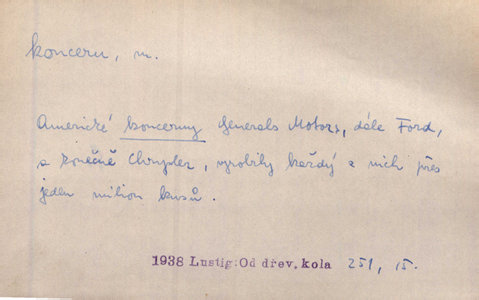 koncern, m.
Americké koncerny Generals Motors, dále Ford,
a konečně Chrysler, vyrobily každý z nich přes
jeden milion kusů.
1938 Lustig: Od dřev. kola 251, 15.